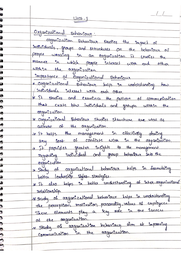 Unit 1
Organizational Behaviour :
organization Behaviour studies the impact of
individuals, groups and structures on the behaviour of
people working in an organization. It studies the
manner in which people interact work and other
within the organization
Importance of organizational Behaviour
organizational Behaviour helps in understanding how
individuals interact with each other
It studies and examines the pattern of communication
that exists b/w individuals and groups within the
organization.
organizational Behaviour studies structures and
culture of the organization
It helps the management in effectively dealing
any sort of conflict within the organization
It provides greater insights to the management
regarding individual and group behaviour into the
organization.
Study of organizational behaviour helps in formulating
better leadership styles strategies
It also helps in better understanding of inter organizational
relationship
Study of organizational Behaviour helps in understanding
the perception, motivation, personality, values of employees
These elements play a key role in the success
of the organization.
Study of organization Behaviour aims at improving
communication in the organization.